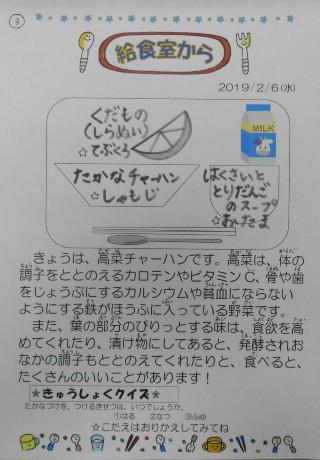 ③
給食室から
2019/2/6(水)
くだもの
(しらぬい)
☆てぶくろ
MILK
たかなチャーハン
☆しゃもじ
はくさいと
とりだんご
のスープ
☆おたま
きょうは、高菜チャーハンです。高菜は、体の
調子をととのえるカロテンやビタミンC、骨や歯
をじょうぶにするカルシウムや貧血にならない
ようにする鉄がほうふに入っている野菜です。
また、葉の部分のぴりっとする味は、食欲を高
めてくれたり、漬け物にしてあると、発酵されお
なかの調子もととのえてくれたりと、食べると、
たくさんのいいことがあります！
★きゅうしょくクイズ★
たかなづけを、つけるきせつは、いつでしょうか。
①はる ②なつ ③ふゆ
☆こたえはおりかえしてみてね